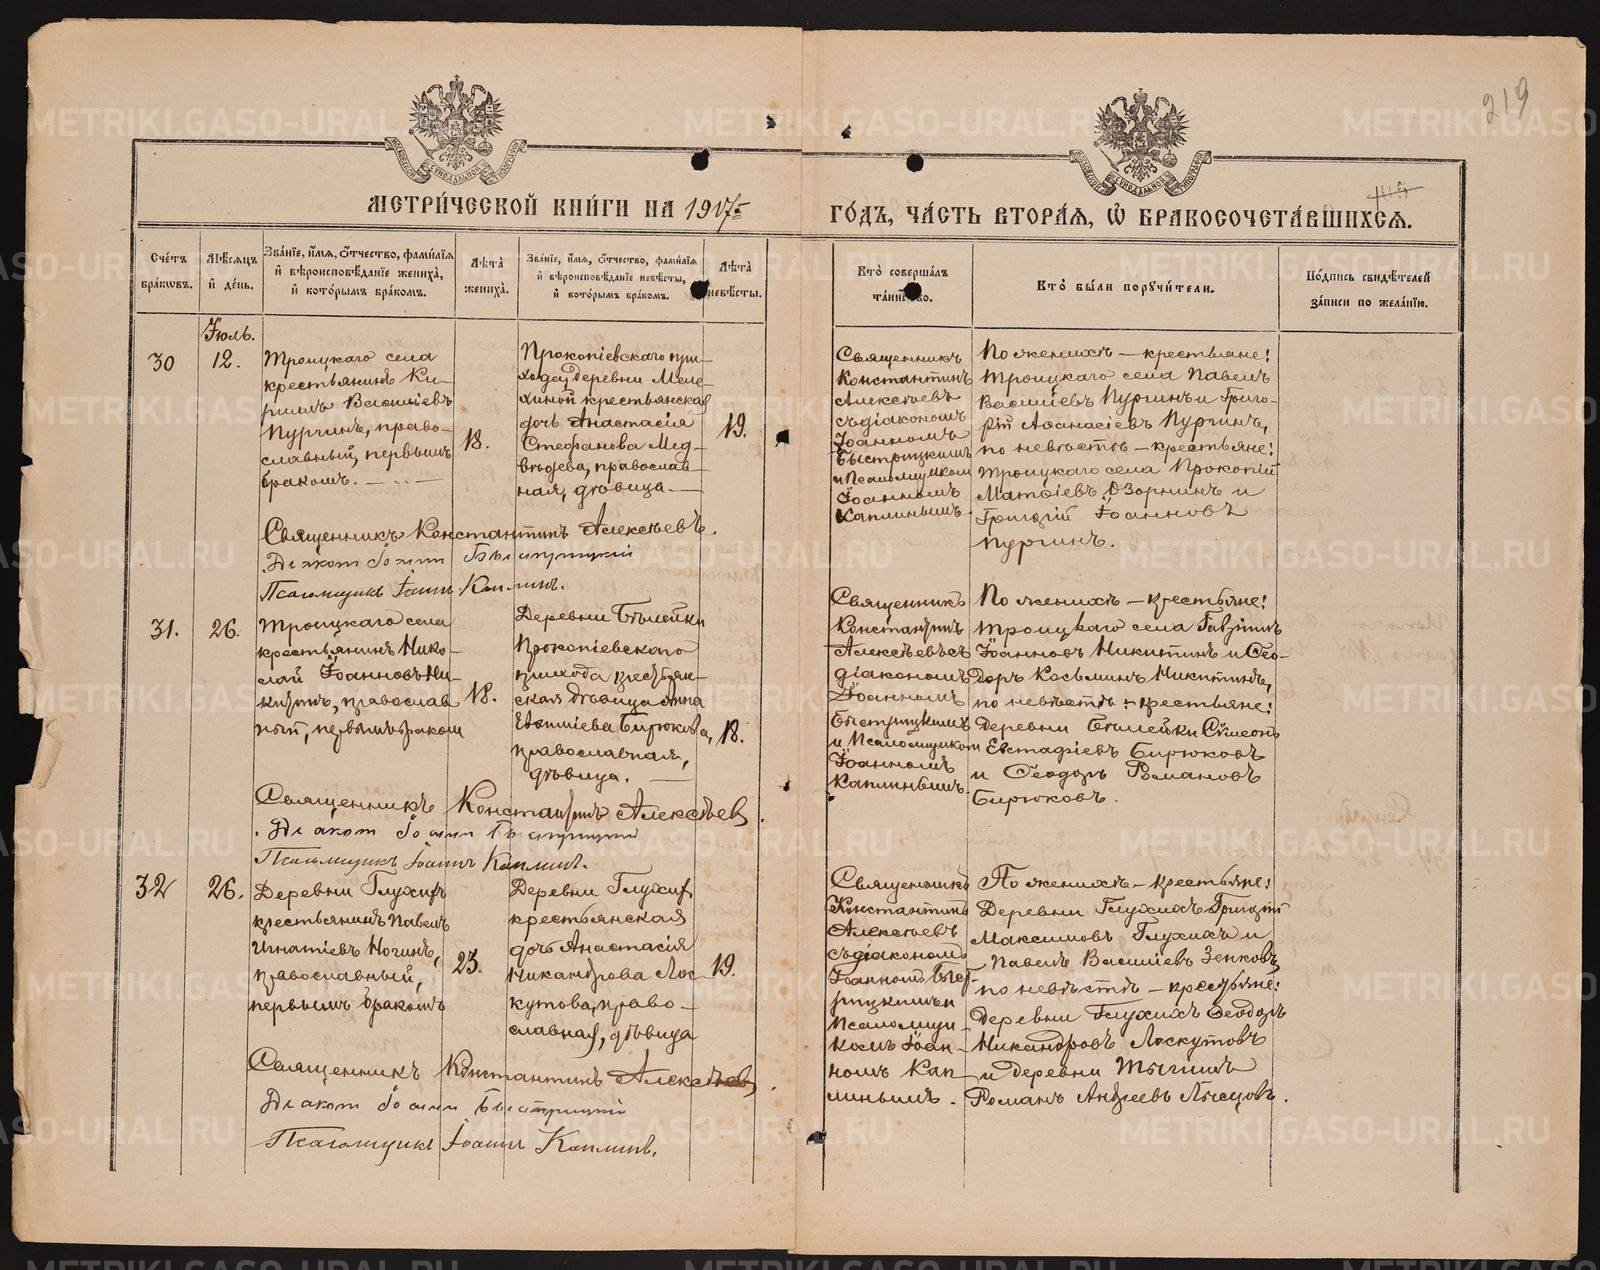 219
МЕТРИ́ЧЕСКОЙ КНИ́ГИ НА 1907й
ГО́ДЪ, ЧА́СТЬ ВТОРА́Я, Ѡ БРАКОСОЧЕТА́ВШИХСЯ.
Сче́тъ бра́кѡвъ.
Мѣ́сяцъ и҆ де́нь.
Зва́нїе, и҆́мя, ѻ҆́тчество, фами́лїя
и҆ вѣроисповѣ́данїе жениха̀,
и҆ кото́рымъ бра́комъ.
Лѣ́та жениха̀.
Зва́нїе, и҆́мя, ѻ҆́тчество, фами́лїя
и҆ вѣроисповѣ́данїе невѣ́сты,
и҆ кото́рымъ бра́комъ.
Лѣ́та невѣ́сты.
Кто̀ соверша́лъ
та́инство.
Кто̀ бы́ли порꙋчи́тели.
По́дпись свидѣ́телей
за́писи по жела́нїю.
Іюль.
30
12.
Троицкаго села
крестьянинъ Ки-
риллъ Василіевъ
Пургинъ, право-
славный, первымъ
бракомъ.
18.
Прокопіевскаго при-
хода, деревни Меле-
хиной крестьянская
дочь Анастасія
Стефанова Мед-
вѣдева, православ-
ная, дѣвица.
19.
Священникъ
Константинъ
Алексѣевъ
съ діакономъ
Іоанномъ
Быстрицкимъ
и Псаломщикомъ
Іоанномъ
Каплинымъ.
По женихѣ – крестьяне:
Троицкаго села Павелъ
Василіевъ Пургинъ и Григо-
рій Аѳанасіевъ Пургинъ,
по невѣстѣ – крестьяне:
Троицкаго села Прокопій
Матѳіевъ Озорнинъ и
Григорій Іоанновъ
Пургинъ.
Священникъ Константинъ Алексѣевъ.
Діаконъ Іоаннъ Быстрицкій
Псаломщикъ Іоаннъ Каплинъ.
31.
26.
Троицкаго села
крестьянинъ Нико-
лай Іоанновъ Ни-
китинъ, православ
ный, первымъ бракомъ
18.
Деревни Бѣлейки
Прокопіевскаго
прихода крестьян-
ская дѣвица Анна
Евѳиміева Бирюкова,
православная,
дѣвица.
18.
Священникъ
Константинъ
Алексѣевъ съ
діакономъ
Іоанномъ
Быстрицкимъ
и Псаломщикомъ
Іоанномъ
Каплинымъ.
По женихѣ – крестьяне:
Троицкаго села Гавріилъ
Іоанновъ Никитинъ и Ѳео-
доръ Косьминъ Никитинъ,
по невѣстѣ – крестьяне:
Деревни Бѣлейки Сѵмеонъ
Евстафіевъ Бирюковъ
и Ѳеодоръ Романовъ
Бирюковъ.
Священникъ Константинъ Алексѣевъ.
Діаконъ Іоаннъ Быстрицкій
Псаломщикъ Іоаннъ Каплинъ.
32
26.
Деревни Глухихъ
крестьянинъ Павелъ
Игнатіевъ Ногинъ,
православный,
первымъ бракомъ
23.
Деревни Глухихъ
крестьянская
дочь Анастасія
Никандрова Лос
кутова, право-
славная, дѣвица
19.
Священникъ
Константинъ
Алексѣевъ
съ діакономъ
Іоанномъ Быст-
рицкимъ и
Псаломщи-
комъ Іоан-
номъ Кап-
линымъ.
По женихѣ – крестьяне:
Деревни Глухихъ Григорій
Максимовъ Глухихъ и
Павелъ Василіевъ Зенковъ
по невѣстѣ – крестьяне:
Деревни Глухихъ Ѳеодоръ
Никандровъ Лоскутовъ
и деревни
Романъ Андреевъ Лысцовъ.
Священникъ Константинъ Алексѣевъ.
Діаконъ Іоаннъ Быстрицкій
Псаломщикъ Іоаннъ Каплинъ.
METRIKI.GASO-URAL.RU